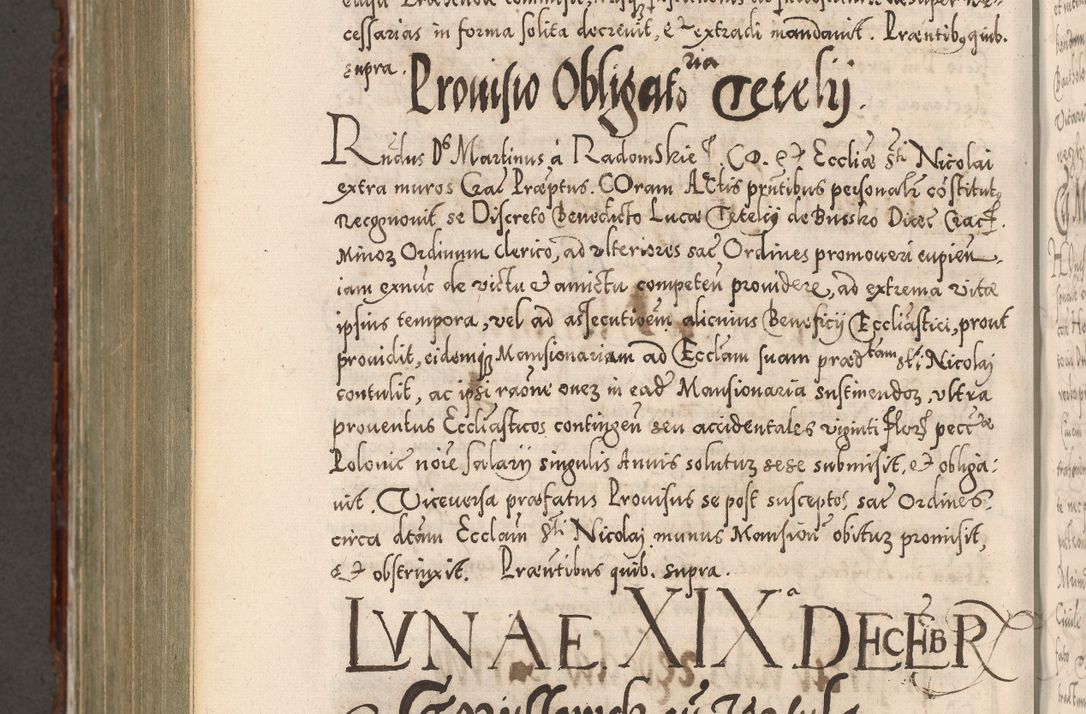 cessarias in forma solita decrevit, et extradi mandavit. Præntibus quib.
supra.
Provisio Obligatoria Tetelij.
Rndus Ds Martinus á Radomskie CO. et Eccliæ Sti Nicolai
extra muros Crac Præptus. COram Actis prntibus personalr cóstitutq
Recognovit se Discreto Benedicto Lucæ Tetelij de Bussko Diœc Crac.
Minoz Ordinum Clerico, ad ulteriores sac Ordines promoveri cupien
iam exnuc de victu et amictu competen providere, ad extrema vitæ
ipsius tempora, vel ad assecutioem alicuius Beneficij Ecclíastici, prout
providit, eidemqz Mansionariam ad Ecclam suam prædtam Sti Nicolaj
contulit, ac ipsi raóne onez in ead Mansionaria sustinendoz, ultra
proventus Ecclíasticos contingen seu accidentales viginti Flor pecc
Polonic noíe salarij singulis Annis solutuz sese submisit, et obliga:
vit. Viceversa præfatus Provisus se post susceptos sac Ordines
circa dtam Ecclam Sti Nicolaj munus Mansion obituz promisit,
et obstrinxit. Præntibus quib. supra.
LVNAE. XIXa DECEBR